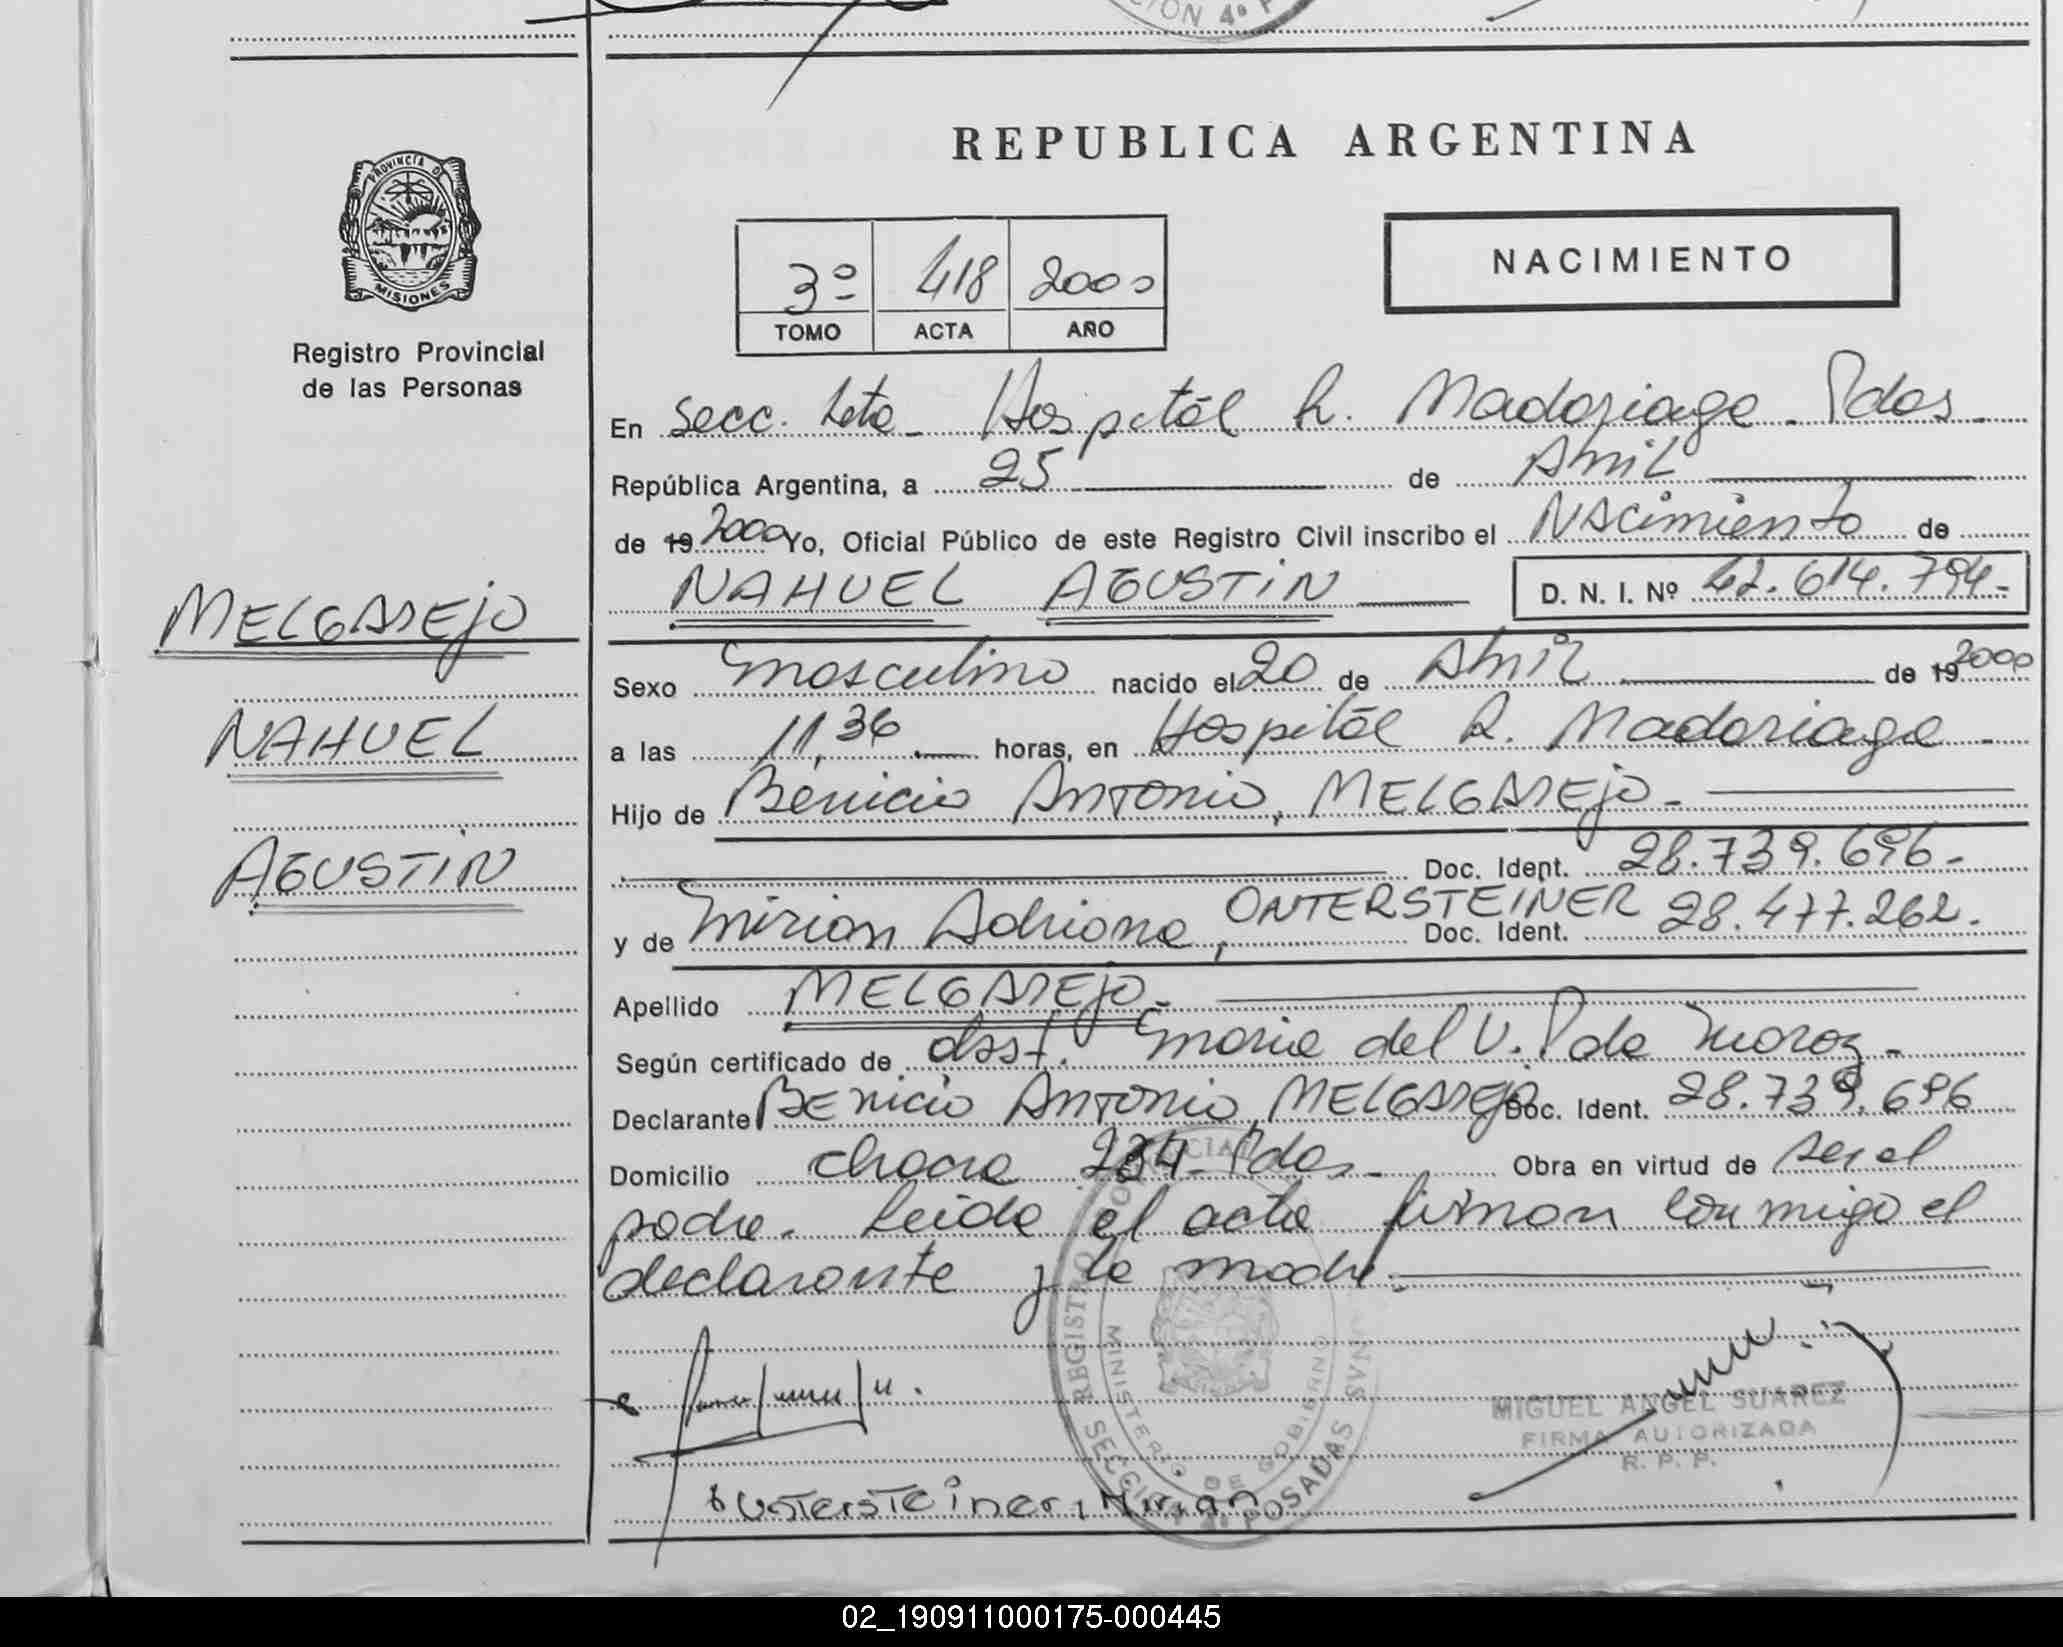 CION 4º P
REPUBLICA ARGENTINA
PROVINCIA DE
MISIONES
Registro Provincial
de las Personas
3º 418 2000
TOMO ACTA AÑO
NACIMIENTO
En Secc. 4ta - Hospital R. Madariaga - Pdas -
República Argentina, a 25 de Abril
de 19 2000 Yo, Oficial Público de este Registro Civil inscribo el Nacimiento de
NAHUEL AGUSTIN D. N. I. Nº 42.614.794.-
MELGAREJO
NAHUEL
AGUSTIN
Sexo masculino nacido el 20 de Abril de 19 2000
a las 11,36 horas, en Hospital R. Madariaga -
Hijo de Benicio Antonio, MELGAREJO -
Doc. Ident. 28.739.696 -
y de Mirian Adriana, ONTERSTEINER Doc. Ident. 28.477.262.
Apellido MELGAREJO -
Según certificado de obst. Maria del V. P. de -
Declarante Benicio Antonio MELGAREJO Doc. Ident. 28.739.696
Domicilio chacra - Pdas - Obra en virtud de ser el
padre. Leida el acta firman conmigo el
declarante y la madre.
REGISTRO PROVINCIAL
MINISTERIO DE GOBIERNO
SECCION 4º POSADAS
MIGUEL ANGEL SUAREZ
FIRMA AUTORIZADA
R. P. P.
Untersteiner, Mirian
02_190911000175-000445